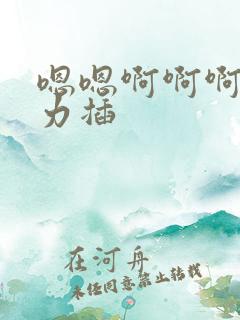 嗯嗯啊啊啊
力插
在河舟
未经同意禁止转载